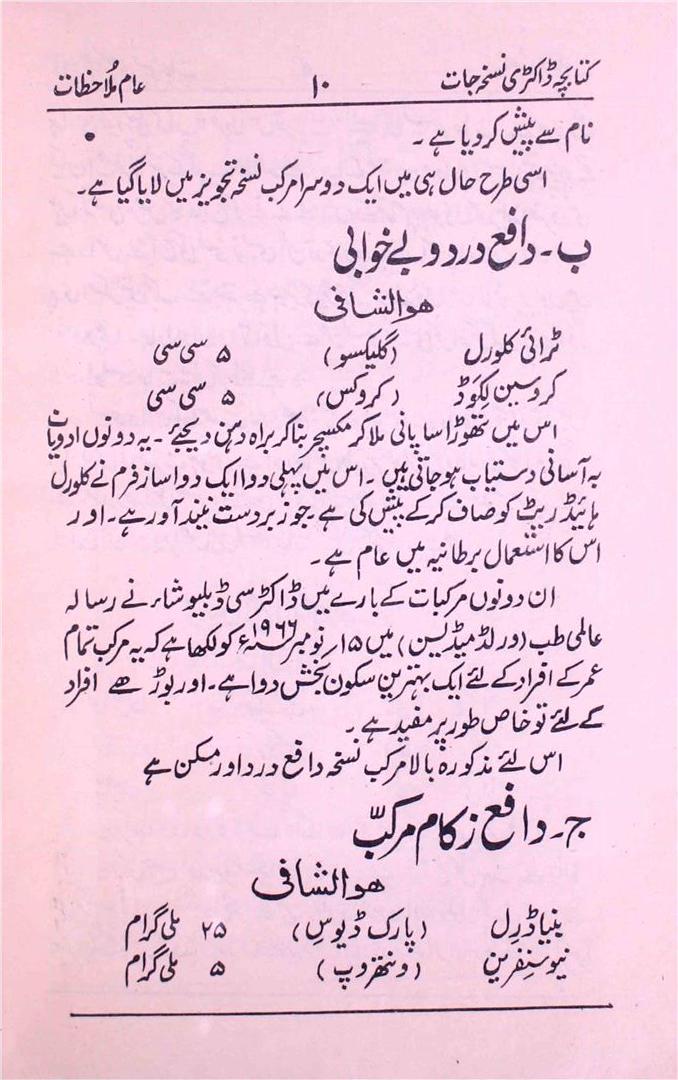 کتابچہ ڈاکٹری نسخہ جات ۱۰ عام مُلاحظات
نام سے پیش کردیا ہے ۔
اسی طرح حال ہی میں ایک دوسرا مرکب نسخہ تجویز میں لایا گیا ہے ۔
ب ۔ دافع درد و بے خوابی
ھوالشافی
ٹرائی کلورل (گلیکسو) ۵ سی سی
کروسین لکوِڈ (کروکس) ۵ سی سی
اس میں تھوڑا سا پانی ملا کر مکسچر بنا کر براہ دہن دیجئے ۔ یہ دونوں ادویات
بہ آسانی دستیاب ہوجاتی ہیں ۔ اس میں پہلی دوا ایک دوا ساز فرم نے کلورل
ہائیڈریٹ کو صاف کرکے پیش کی ہے ۔ جو زبردست نیند آور ہے ۔ اور
اس کا استعمال برطانیہ میں عام ہے ۔
ان دونوں مرکبات کے بارے میں ڈاکٹر سی ڈبلیو شار نے رسالہ
عالمی طب (ورلڈ میڈیسن) میں ۱۵ نومبر ۱۹۶۶ء کو لکھا ہے کہ یہ مرکب تمام
عمر کے افراد کے لئے ایک بہترین سکون بخش دوا ہے ۔ اور بوڑھے افراد
کے لئے تو خاص طور پر مفید ہے ۔
اس لئے مذکورہ بالا مرکب نسخہ دافع درد اور مسکن ہے
ج ۔ دافع زکام مرکبّ
ھوالشافی
بنیاڈرِل (پارک ڈیوس) ۲۵ ملی گرام
نیوسنفرین (ونتھروپ) ۵ ملی گرام